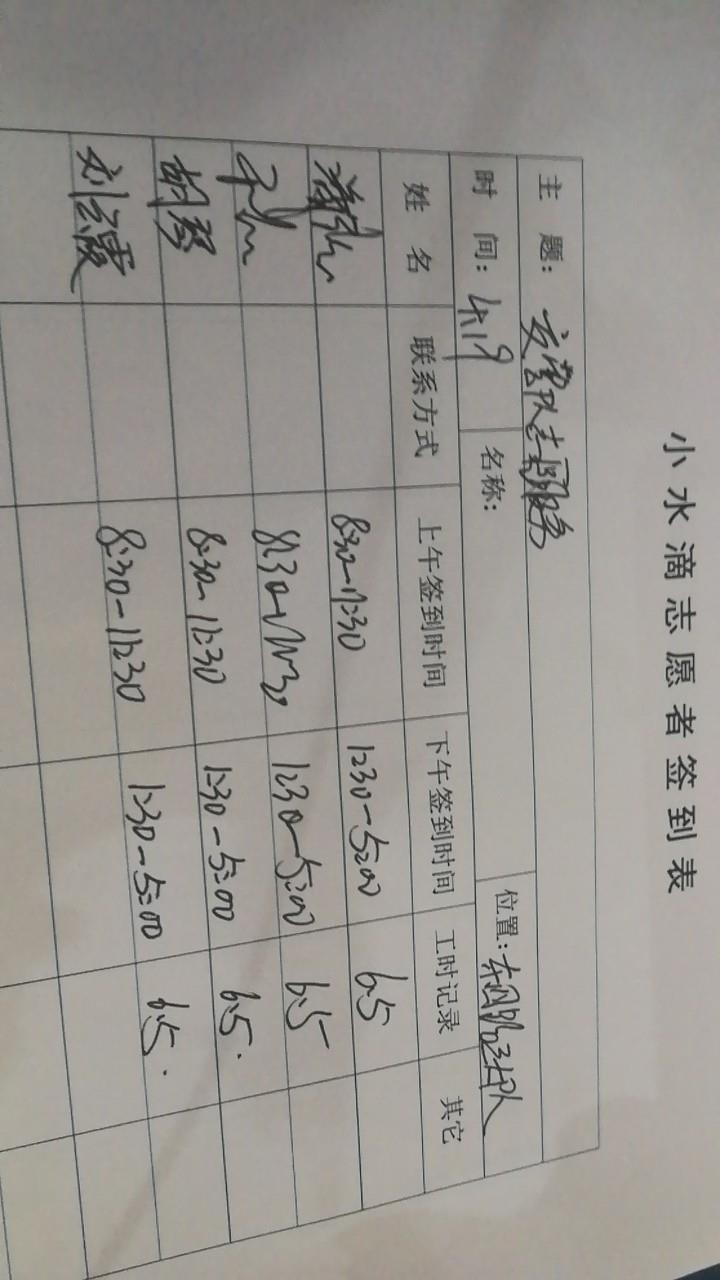 小水滴志愿者签到表
主 题: 交警队志愿服务
时 间: 4.19 名称: 位置:
姓 名 联系方式 上午签到时间 下午签到时间 工时记录 其它
8:30-11:30 1:30-5:00 6.5
8:30-11:30 1:30-5:00 6.5
胡琴 8:30-11:30 1:30-5:00 6.5.
刘云霞 8:30-11:30 1:30-5:00 6.5.